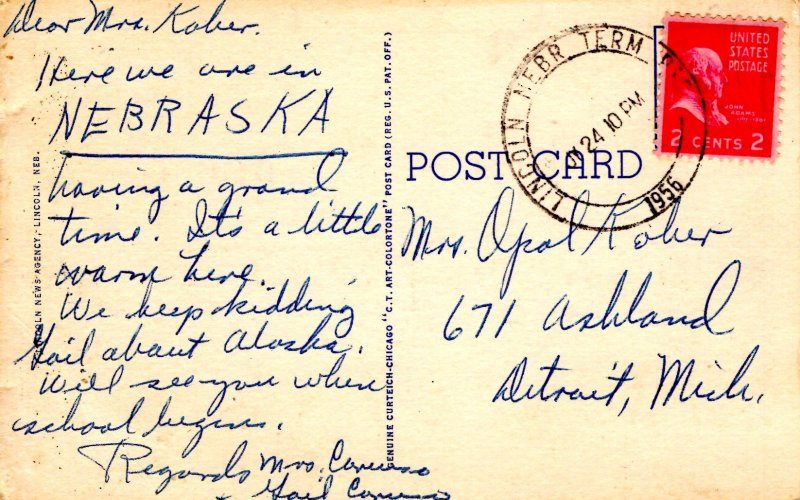 Dear Mrs. Kober.
Here we are in
NEBRASKA
having a grand
time. It's a little
warm here.
We keep kidding
Gail about Alaska.
Will see you when
school begins.
Regards Mrs. Caruso
+ Gail Caruso
LINCOLN NEWS AGENCY, LINCOLN, NEB.
GENUINE CURTEICH-CHICAGO "C.T. ART-COLORTONE" POST CARD (REG. U.S. PAT. OFF.)
POST CARD
LINCOLN NEBR TERM
24 10 PM
1956
UNITED
STATES
POSTAGE
JOHN
ADAMS
2 CENTS 2
Mrs. Opal Kober
671 Ashland
Detroit, Mich.